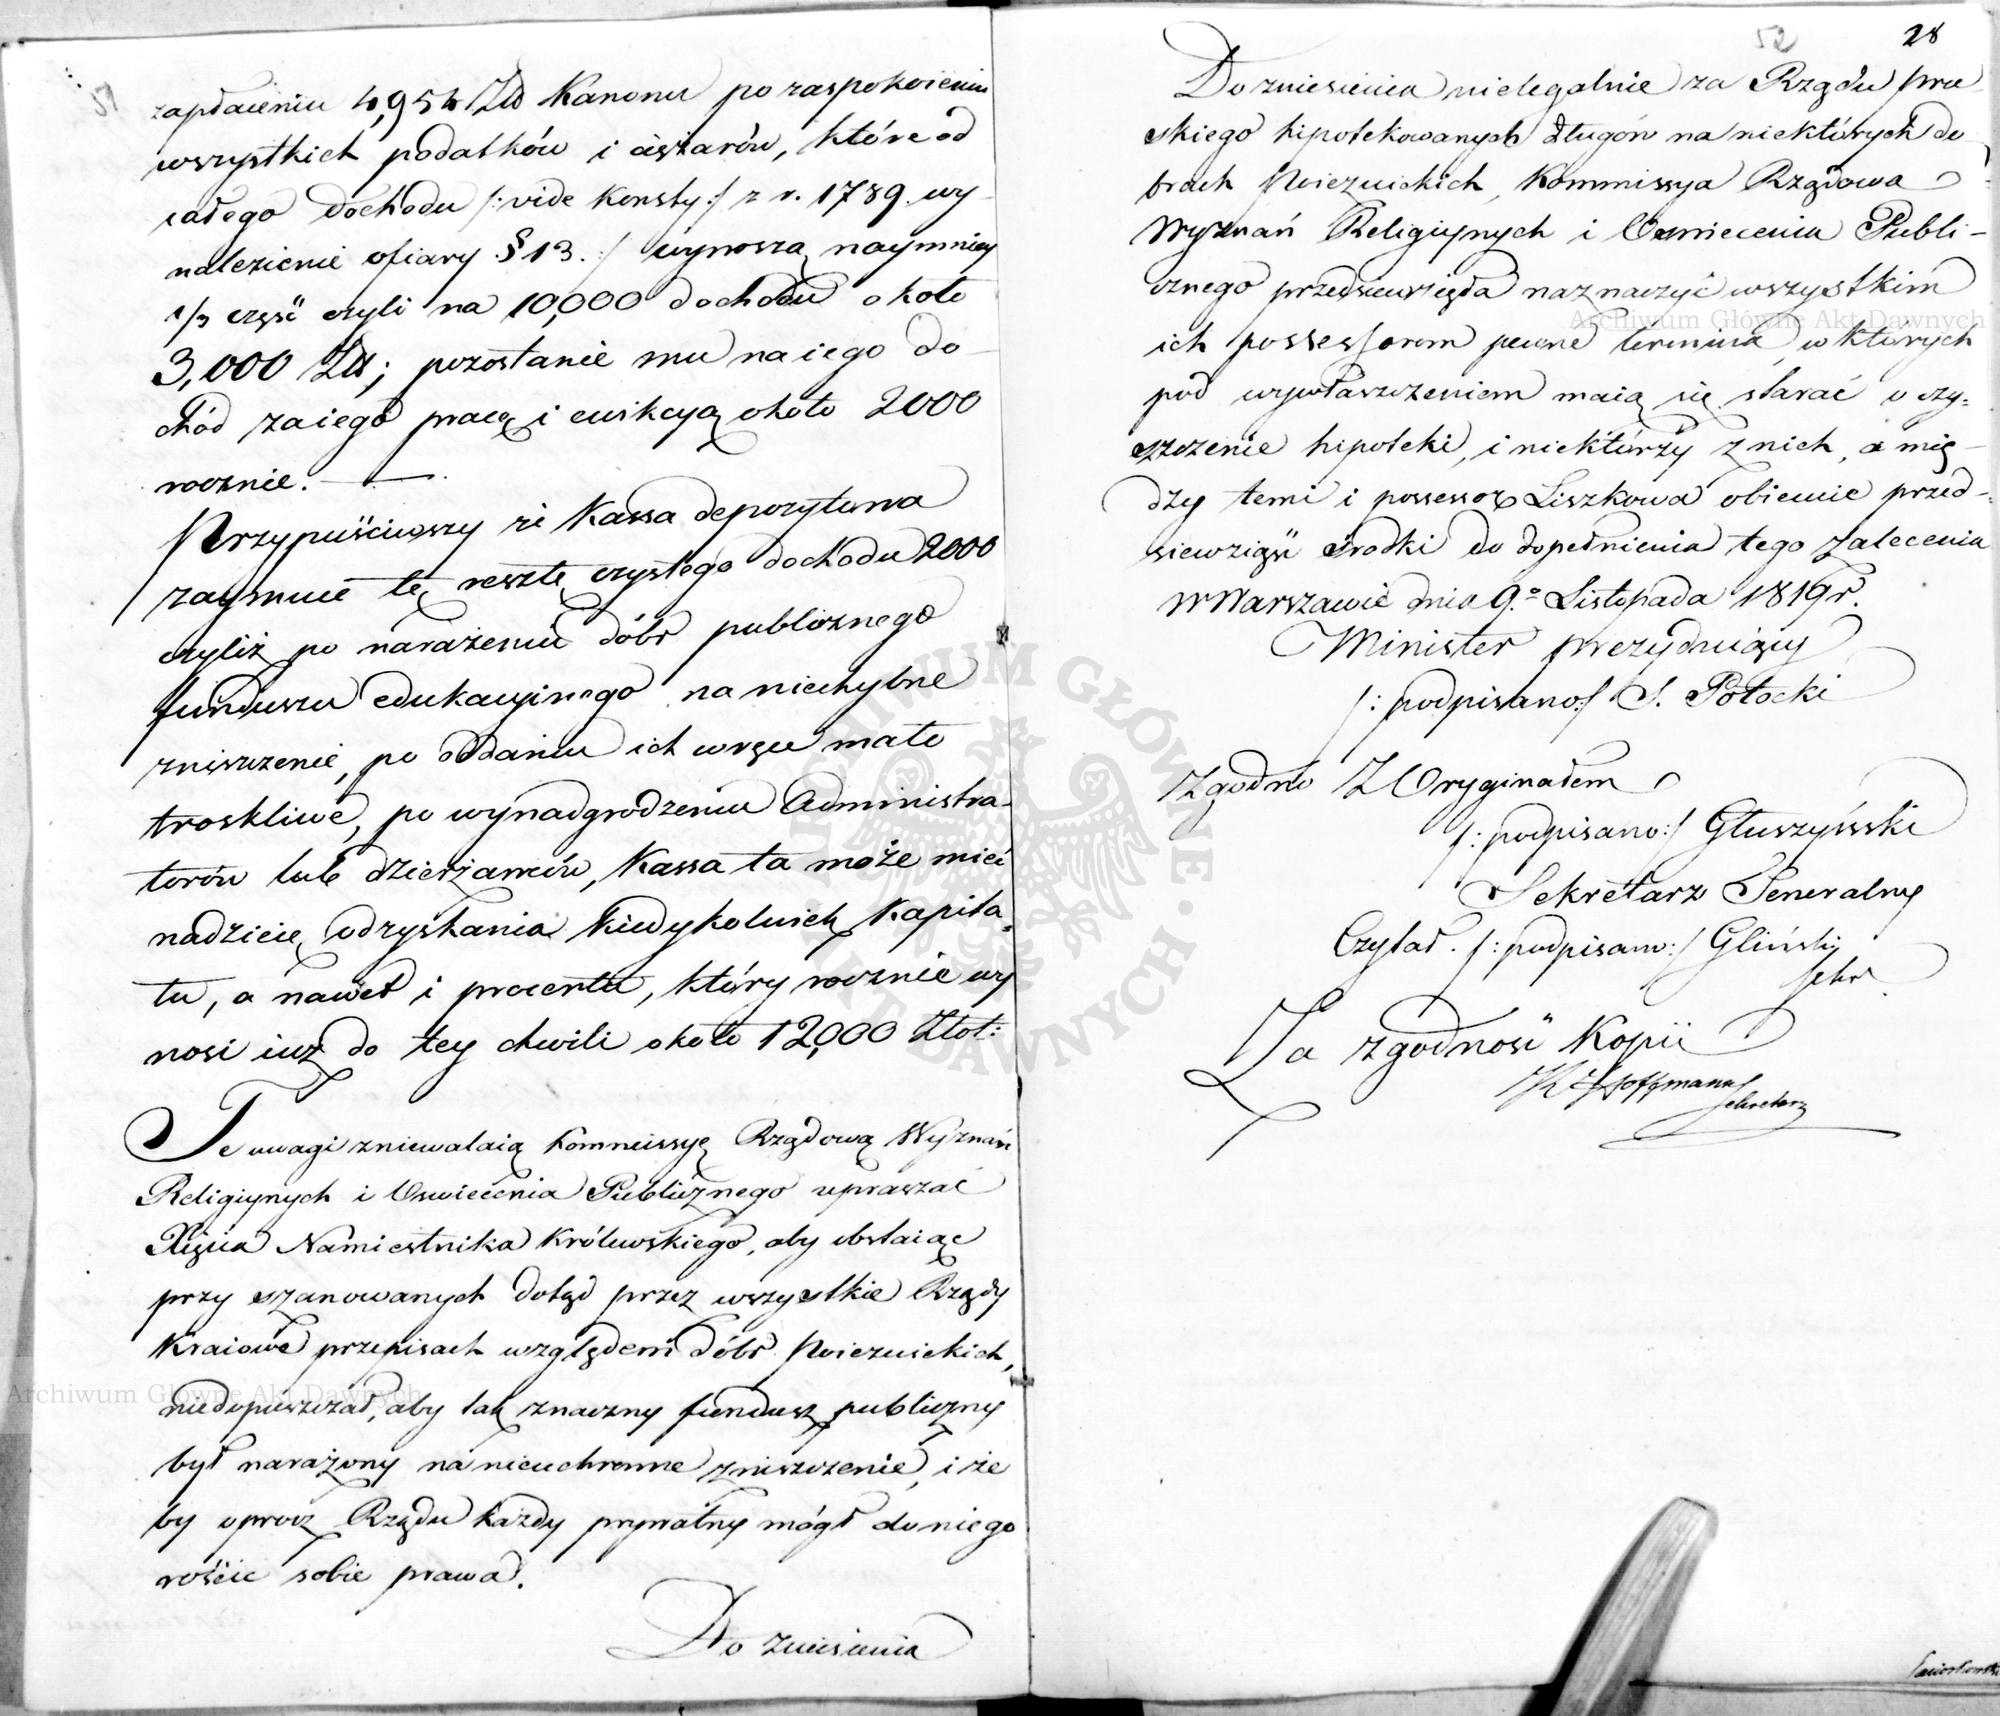 51
zapłaceniu 4,954 Złł Kanonu po zaspokoieniu
wszystkich podatków i ciężarów, które od
całego dochodu /: vide Konsty:/ z r. 1789. wy-
nalezienie ofiary §13.:/ wynoszą naymniey
1/3 część czyli na 10,000 dochodu około
3,000 Złł; pozostanie mu na iego do-
chód za iego pracę i ewikcyą około 2000
rocznie.
Przypuściwszy że Kassa depozytowa
zaymuie tę resztę czystego dochodu 2000
czyliż po narażeniu dóbr publicznego
funduszu edukacyinego na niechybne
zniszczenie, po oddaniu ich w ręce mało
troskliwe, po wynadgrodzeniu Administra-
torów lub dzierżawców, Kassa ta może mieć
nadzieię odzyskania kiedykolwiek kapita-
łu, a nawet i procentu, który rocznie wy
nosi iuż do tey chwili około 12,000 Złot:
Te uwagi zniewalaią Kommissyę Rządową Wyznań
Religiynych i Oswiecenia Publicznego upraszać
Xięcia Namiestnika Królewskiego, aby obstaiąc
przy szanowanych dotąd przez wszystkie Rządy
Kraiowe przepisach względem dóbr Poiezuickich,
niedopuszczał, aby tak znaczny fundusz publiczny
był narażony na nieuchronne zniszczenie, i że
by oprocz Rządu każdy prywatny mógł do niego
rościc sobie prawa.
Do zniesienia
52
28
Do zniesienia nielegalnie za Rządu pru
skiego hipotekowanych długów na niektórych do
brach Poiezuickich, Kommissya Rządowa
Wyznań Religiynych i Oswiecenia Publi-
cznego przedsiewzięła naznaczyć wszystkim
ich possessorom pewne termina, w których
pod wywłaszczeniem maią się starać o czy-
szczenie hipoteki, i niektórzy z nich, a mię-
dzy temi i possessor Liszkowa obiecuie przed-
siewziąść środki do dopełnienia tego zalecenia
w Warszawie dnia 9.º Listopada 1819 r.
Minister prezyduiący
/: podpisano:/ S. Potocki
Zgodno z Oryginałem
/: podpisano:/ Głuszyński
Sekretarz Generalny
Czytał. /: podpisano:/ Gliński
Sekr.
Za zgodność Kopii
Hoffmann
Sekretarz
Archiwum Główne Akt Dawnych
Archiwum Główne Akt Dawnych
ARCHIWUM GŁÓWNE · AKT DAWNYCH ·